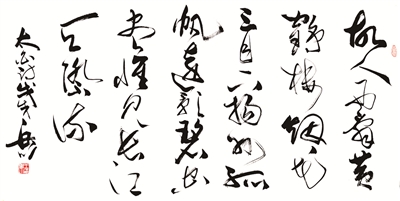 故人西辞黄
鹤楼烟花
三月下揚州孤
帆遠影碧空
尽惟見長江
天際流
太白诗